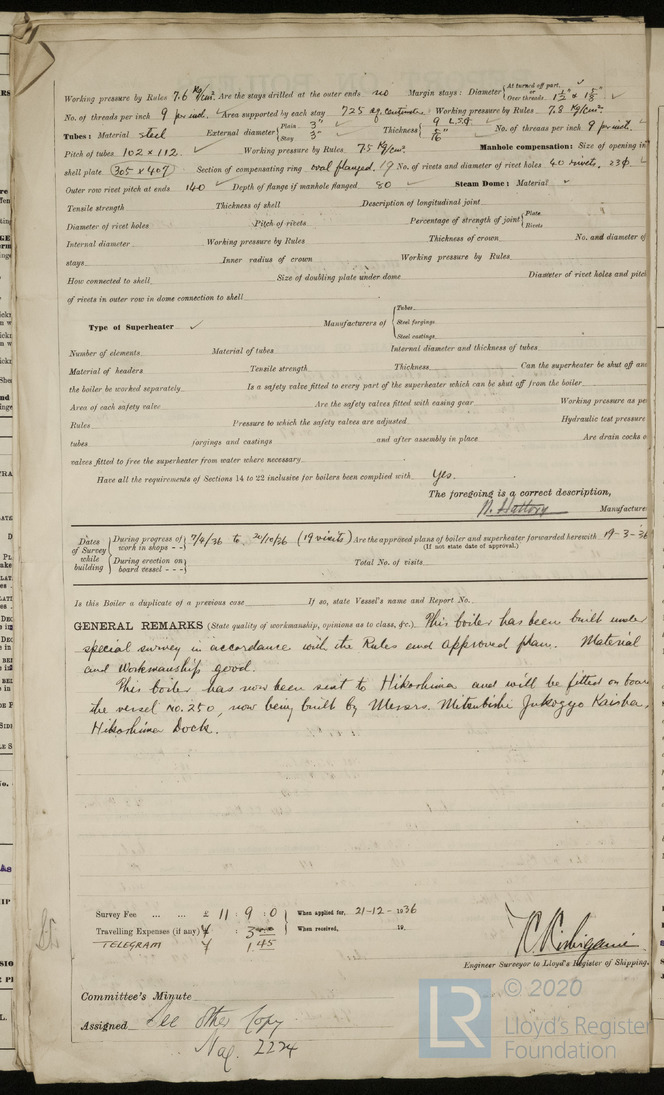 Working pressure by Rules 7.6 Kg/cm². Are the stays drilled at the outer ends no Margin stays: Diameter { At turned off part, or Over threads 1½" × 1⅝"
No. of threads per inch 9 per inch. Area supported by each stay 725 sq. centimetre Working pressure by Rules 7.8 Kg/cm²
Tubes: Material steel External diameter { Plain 3" Stay 3" Thickness { 9 L.S.G. 5/16" No. of threads per inch 9 per inch.
Pitch of tubes 102 × 112 Working pressure by Rules 7.5 Kg/cm². Manhole compensation: Size of opening in
shell plate (305 × 407) Section of compensating ring oval flanged, 19 No. of rivets and diameter of rivet holes 40 rivets, 23φ
Outer row rivet pitch at ends 140 Depth of flange if manhole flanged 80 Steam Dome: Material
Tensile strength Thickness of shell Description of longitudinal joint
Diameter of rivet holes Pitch of rivets Percentage of strength of joint { Plate Rivets
Internal diameter Working pressure by Rules Thickness of crown No. and diameter of
stays Inner radius of crown Working pressure by Rules
How connected to shell Size of doubling plate under dome Diameter of rivet holes and pitch
of rivets in outer row in dome connection to shell
Type of Superheater Manufacturers of { Tubes Steel forgings Steel castings
Number of elements Material of tubes Internal diameter and thickness of tubes
Material of headers Tensile strength Thickness Can the superheater be shut off and
the boiler be worked separately Is a safety valve fitted to every part of the superheater which can be shut off from the boiler
Area of each safety valve Are the safety valves fitted with easing gear Working pressure as per
Rules Pressure to which the safety valves are adjusted Hydraulic test pressure
tubes forgings and castings and after assembly in place Are drain cocks o
valves fitted to free the superheater from water where necessary
Have all the requirements of Sections 14 to 22 inclusive for boilers been complied with Yes.
The foregoing is a correct description,
N. Hattory Manufacturer
Dates of Survey while building { During progress of work in shops - - } 7/4/36 to 20/10/36 (19 visits) Are the approved plans of boiler and superheater forwarded herewith 19-3-36
(If not state date of approval.)
{ During erection on board vessel - - - } Total No. of visits
Is this Boiler a duplicate of a previous case If so, state Vessel's name and Report No.
GENERAL REMARKS (State quality of workmanship, opinions as to class, &c.) This boiler has been built under
special survey in accordance with the Rules and approved plan. Material
and Workmanship good.
This boiler has now been sent to Hikoshima and will be fitted on board
the vessel No. 250, now being built by Messrs. Mitsubishi Jukogyo Kaisha,
Hikoshima Dock.
Survey Fee ... ... £ 11 : 9 : 0 When applied for, 21-12-1936
Travelling Expenses (if any) ¥ : 3 When received, 19
TELEGRAM ¥ 1.45
Engineer Surveyor to Lloyd's Register of Shipping.
Committee's Minute
Assigned See other Copy
Nag. 2224
© 2020
LR
Lloyd's Register
Foundation